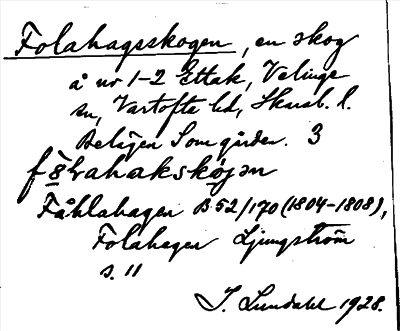 Folahagsskogen, en skog
å nr 1-2 Ettak, Velinge
sn, Vartofta hd, Skarab. l.
Belägen Som gården. 3
Fåhlahagen B 52/170 (1804-1808),
Folahagen Ljungström
s. 11
J. Lundahl 1928.